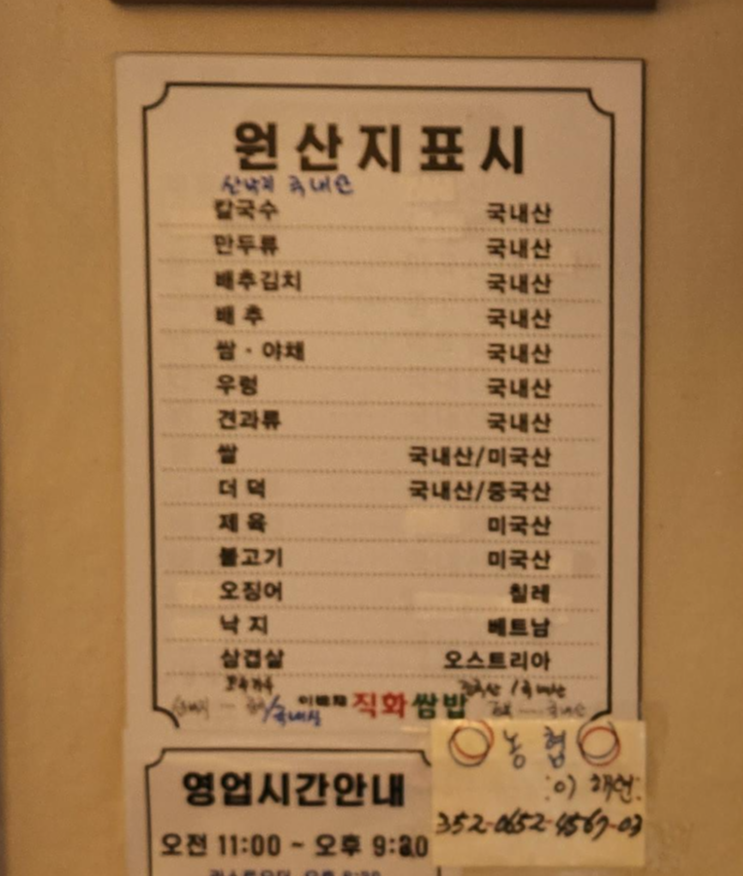 원산지표시
산낙지 국내산
칼국수 국내산
만두류 국내산
배추김치 국내산
배추 국내산
쌈·야채 국내산
우렁 국내산
견과류 국내산
쌀 국내산/미국산
더덕 국내산/중국산
제육 미국산
불고기 미국산
오징어 칠레
낙지 베트남
삼겹살 오스트리아
/국내산
직화쌈밥
농협
352-0652-4567-03
영업시간안내
오전 11:00 ~ 오후 9:20